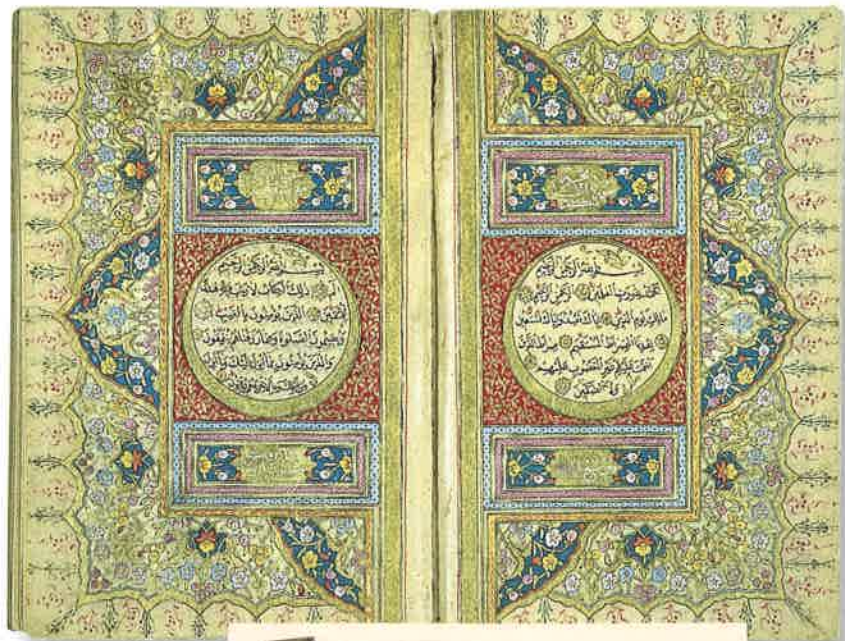 بسم الله الرحمن الرحيم
الحمد لله رب العالمين الرحمن الرحيم
مالك يوم الدين اياك نعبد واياك نستعين
اهدنا الصراط المستقيم صراط الذين
انعمت عليهم غير المغضوب عليهم
ولا الضالين
بسم الله الرحمن الرحيم
الم ذلك الكتاب لا ريب فيه هدى
للمتقين الذين يؤمنون بالغيب
ويقيمون الصلوة ومما رزقناهم ينفقون
والذين يؤمنون بما انزل اليك وما انزل
من قبلك وبالاخرة هم يوقنون